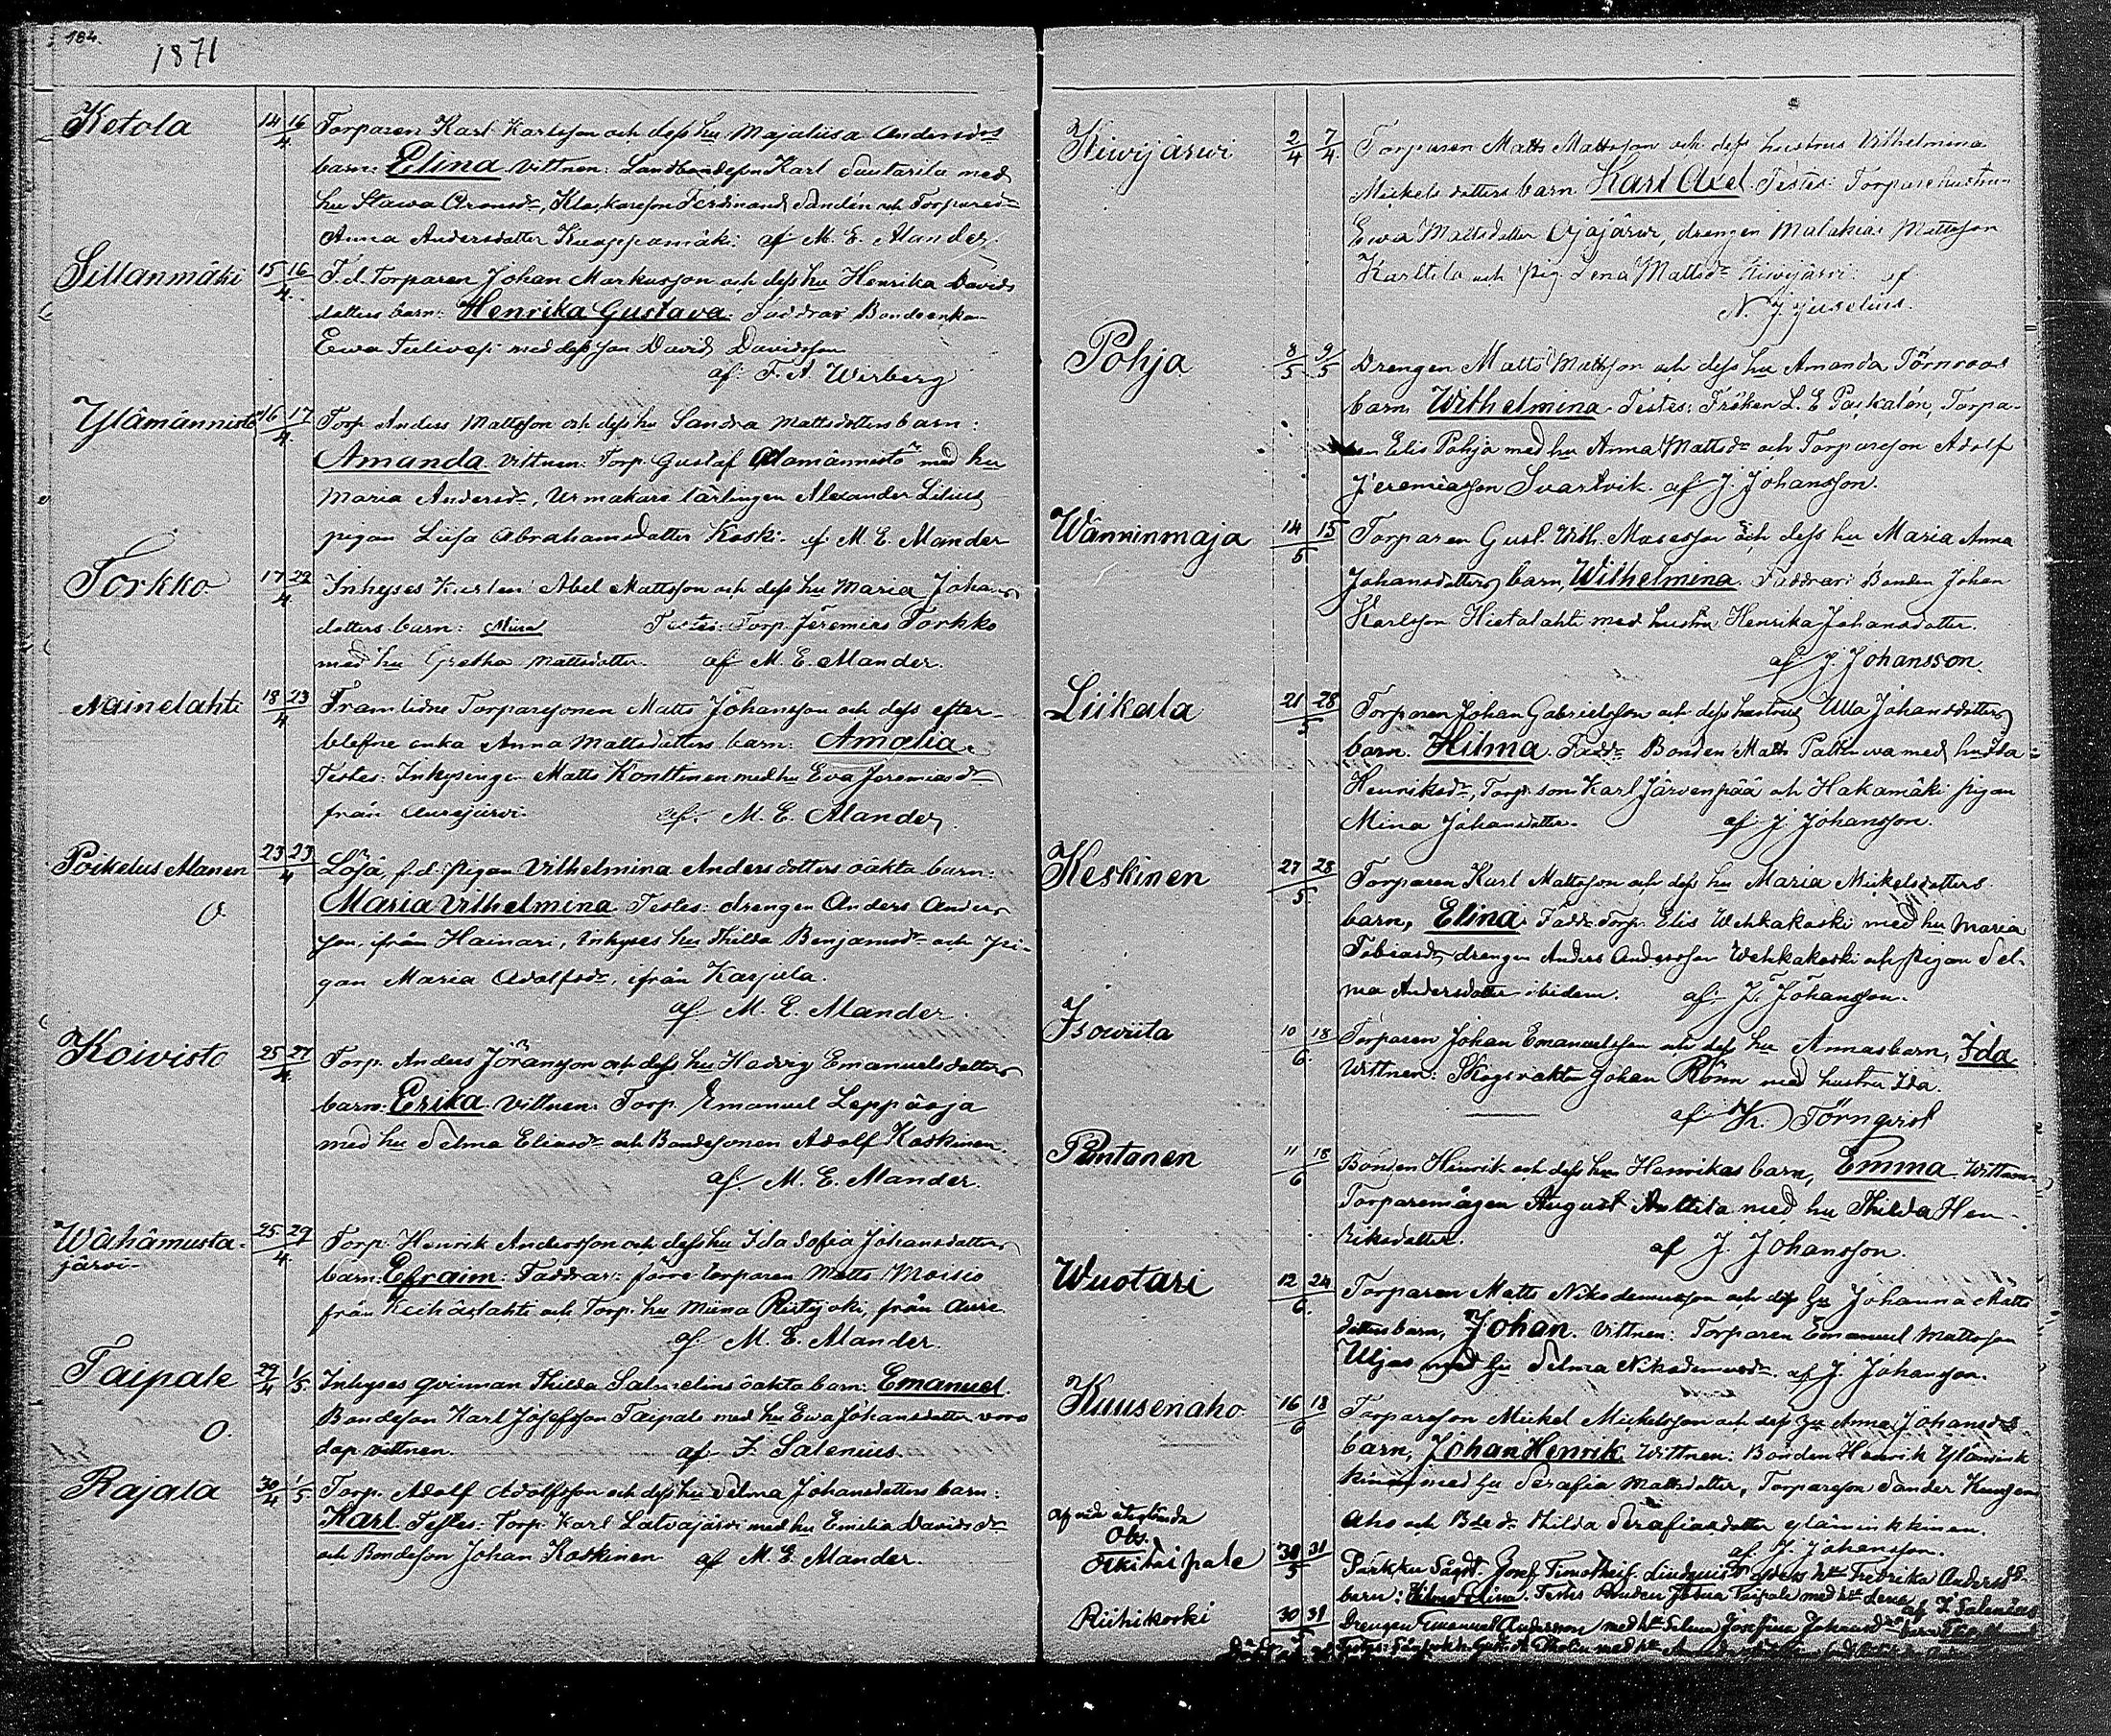 184.
1871
Ketola 14 16/4 Torparen Karl Karlsson och dess hu Majalusa Andersdrs
barn: Elina vittnen: Landbondeson Karl Sautarila med
hu Stava Aronsdr, Klockareson Ferdinand Sandén och Torparedr
Anna Andersdotter Knappamäki af M. E. Alander.
Sillanmäki 15 16/4 F.d. Torparen Johan Markusson och dess hu Henrika Davids
dotters barn: Henrika Gustava: Faddrar Bondeenkan
Ewa med dess son David Davidsson
af: F. A. Wirberg
Ylämännistö 16 17/4 Torp Anders Mattsson och dess hu Sandra Mattsdotters barn:
Amanda vittnen: Torp. Gustaf Alamännistö med hu
Maria Andersdr, Urmakare lärlingen Alexander Lilius
pigan Liisa Abrahamsdotter Koski. af: M. E. Alander
Torkko 17 22/4 Inhyses Karlen Abel Mattsson och dess hu Maria Johans
dotters barn: Mina Testes: Torp. Jeremias Torkko
med hu Gretha Mattsdotter. af M. E. Alander.
Nainelahti 18 23/4 Framlidne Torparesonen Matts Johansson och dess efter-
blefne enka Anna Mattsdotters barn: Amalia.
Testes: Inhysingen Matts Konttinen med hu Eva Jeremiasdr
från Aurejärvi. af. M. E. Alander.
Poikelus Alanen 23 23/4 Lösa, f.d. pigan Vilhelmina Andersdotters oäkta barn:
O Maria Vilhelmina Testes: drengen Anders Anders
son, ifrån Hainari, Inhyses hu Thilda Benjamsdr och pi-
gan Maria Adolfsdr, ifrån Karjula.
af M. E. Alander.
Koivisto 25 27/4 Torp. Anders Göransson och dess hu Hedvig Emanuelsdotters
barn: Erika vittnen: Torp Emanuel Leppäoja
med hu Selma Eliasdr och Bondesonen Adolf Koskinen.
af. M. E. Alander.
Wähämusta- 25 29/4 Torp. Henrik Andersson och dess hu Ida Sofia Johansdotters
järvi- barn: Efraim: Faddrar: förre torparen Matts Moisio
från Keihäslahti och Torp. hu Mina Ristijoki, från Aure.
af M. E. Alander.
Taipale 29/4 1/5 Inhyses qvinnan Thilda Salmelins oäkta barn: Emanuel.
O. Bondeson Karl Josefsson Taipale med hu Ewa Johansdotter voro
dop vittnen. af F. Salenius.
Rajala 30/4 1/5 Torp. Adolf Adolfsson och dess hu Selma Johansdotters barn:
Karl. Testes: Torp. Karl Latvajärvi med hu Emilia Davidsdr
och Bondeson Johan Koskinen af M. E. Alander.
Kiwijärwi 2/4 7/4 Torparen Matts Mattsson och dess hustrus Vilhelmina
Mickelsdotters barn Karl Axel. Testes: Torparehustrun
Ewa Mattsdotter Ojajärwi, drengen Malakias Mattsson
Karttila och pig. Lena Mattsdr Kiwijärvi af
N. J. Juselius.
Pohja 8/5 9/5 Drengen Matts Mattsson och dess hu Amanda Törnroos
barn Wilhelmina. Testes: Fröken L. E. Paskalén, Torpa-
ren Elis Pohja med hu Anna Mattsdr och Torpareson Adolf
Jeremiasson Svartvik. af J. Johansson.
Wänninmaja 14 15/5 Torparen Gust. Wilh. Mosesson och dess hu Maria Anna
Johansdotters barn, Wilhelmina. Faddrar: Bonden Johan
Karlsson Hietalahti med hustru Henrika Johansdotter.
af J. Johansson.
Liikala 21 28/5 Torparen Johan Gabrielsson och dess hustrus Ulla Johansdotters
barn. Hilma. Faddr Bonden Matts med hu Ida
Henriksdr, Torp. son Karl Järvenpää och Hakamäki pigan
Mina Johansdotter. af J. Johansson.
Keskinen 27 28/5 Torparen Karl Mattsson och dess hu Maria Mickelsdotters
barn, Elina. Faddr Torp. Elis Wehkakoski med hu Maria
Tobiasdr, drengen Anders Andersson Wehkakoski och pigan Sel-
ma Andersdotter ibidem. af J. Johansson.
Isowiita 10 18/6 Torparen Johan Emanuelsson och dess hu Annas barn, Ida.
Wittnen: Skogsvakten Johan Rönn med hustru Ida.
af K. Törnqvist
Pentanen 11 18/6 Bonden Henrik och dess hu Henrikas barn, Emma. Wittnen
Torparemågen August Anttila med hu Thilda Hen-
riksdotter. af J. Johansson.
Wuotari 12 24/6 Torparen Matts Nikodemusson och dess hu Johanna Matts
dotters barn, Johan. Vittnen: Torparen Emanuel Mattsson
Uljas med hu Selma Nikodemusdr. af J. Johansson.
Kuusenaho 16 18/6 Torpareson Mickel Mickelsson och dess hu Anna Johansdrs
barn, Johan Henrik. Wittnen: Bonden Henrik Ylänink
kinen med hu Serafia Mattsdotter, Torpareson Sander Kuusen
aho och Bdedr Thilda Serafiasdotter Yläminkkinen.
af J. Johansson.
Obs.
Äkitaipale 30 31/5 Parkku Sågdr. Josef Timotheif. Lindquist o dess hu Fredrika Andersdrs
barn: Hilma Elina. Testes Bonden Josua Taipale med hu Lena af F. Salenius
Riihikoski 30 31/5 Drengen Emanuel Andersson med hu Selma Josefina Johansdrs barn